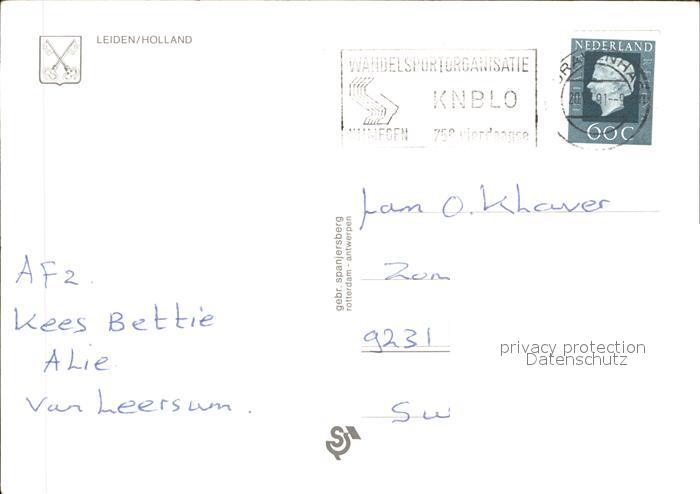 LEIDEN/HOLLAND
WANDELSPORTORGANISATIE
KNBLO
NIJMEGEN 75e vierdaagse
NEDERLAND
60C
gebr. spanjersberg
rotterdam - antwerpen
Jan O. Klaver
Zon
9231
Sw
privacy protection
Datenschutz
AF2.
Kees Bettie
Alie
Van Leersum.